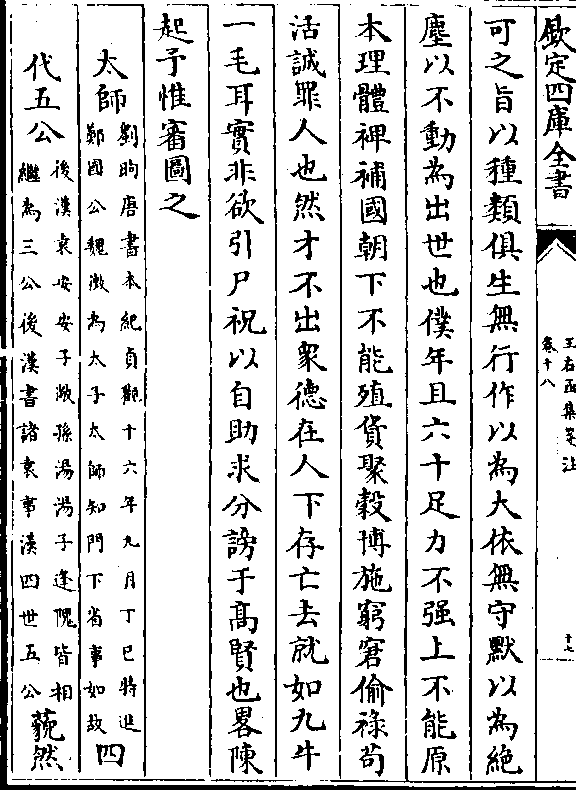 欽定四庫全書
王右丞集箋注
卷十八
十七
可之旨以種類俱生無行作以為大依無守默以為絶
塵以不動為出世也僕年且六十足力不强上不能原
本理體裨補國朝下不能殖貨聚穀博施窮窘偷祿苟
活誠罪人也然才不出衆德在人下存亡去就如九牛
一毛耳實非欲引尸祝以自助求分謗于髙賢也畧陳
起予惟審圖之
太師劉昫唐書本紀貞觀十六年九月丁巳特進
鄭國公魏徵為太子太師知門下省事如故四
代五公後漢袁安安子敞孫湯湯子逢隗皆相
繼為三公後漢書諸袁事漢四世五公藐然